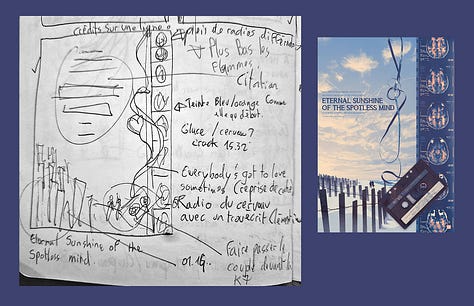 Crédits sur une ligne
plus de radios différentes
Plus bas les
flammes.
Citation
Teinte Bleu/orange comme
début.
Glace / cerveau?
crack 15.32
Everybody's got to love
sometimes (reprise de
Radio du cerveau
avec un
Eternal Sunshine of the
Spotless mind.
01.19..
Faire passer le
couple devant la
K7
ETERNAL SUNSHINE
OF THE SPOTLESS MIND